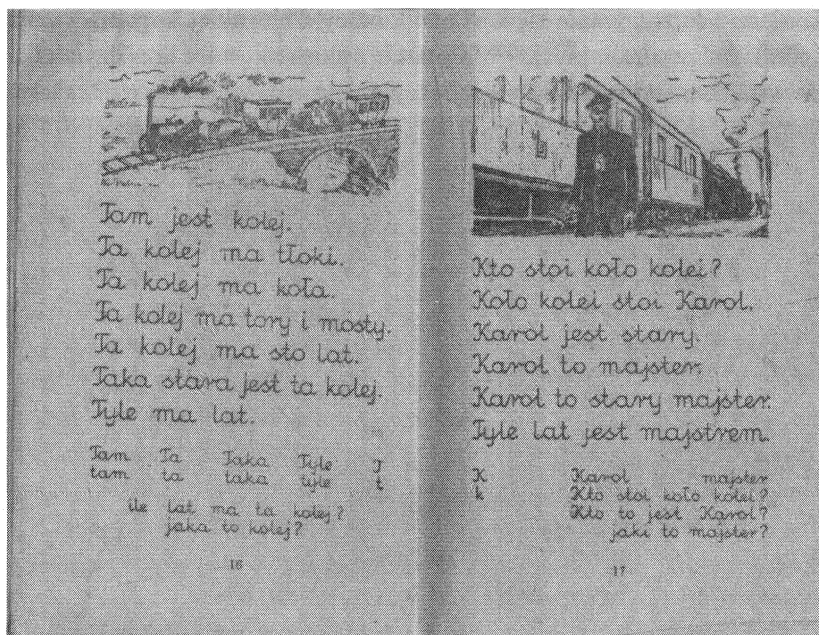 Tam jest kolej.
Ta kolej ma tłoki.
Ta kolej ma koła.
Ta kolej ma tory i mosty.
Ta kolej ma sto lat.
Taka stara jest ta kolej.
Tyle ma lat.
Tam Ta Taka Tyle T
tam ta taka tyle t
ile lat ma ta kolej?
jaka to kolej?
16
Kto stoi koło kolei?
Koło kolei stoi Karol.
Karol jest stary.
Karol to majster.
Karol to stary majster.
Tyle lat jest majstrem.
K Karol majster
k Kto stoi koło kolei?
Kto to jest Karol?
jaki to majster?
17